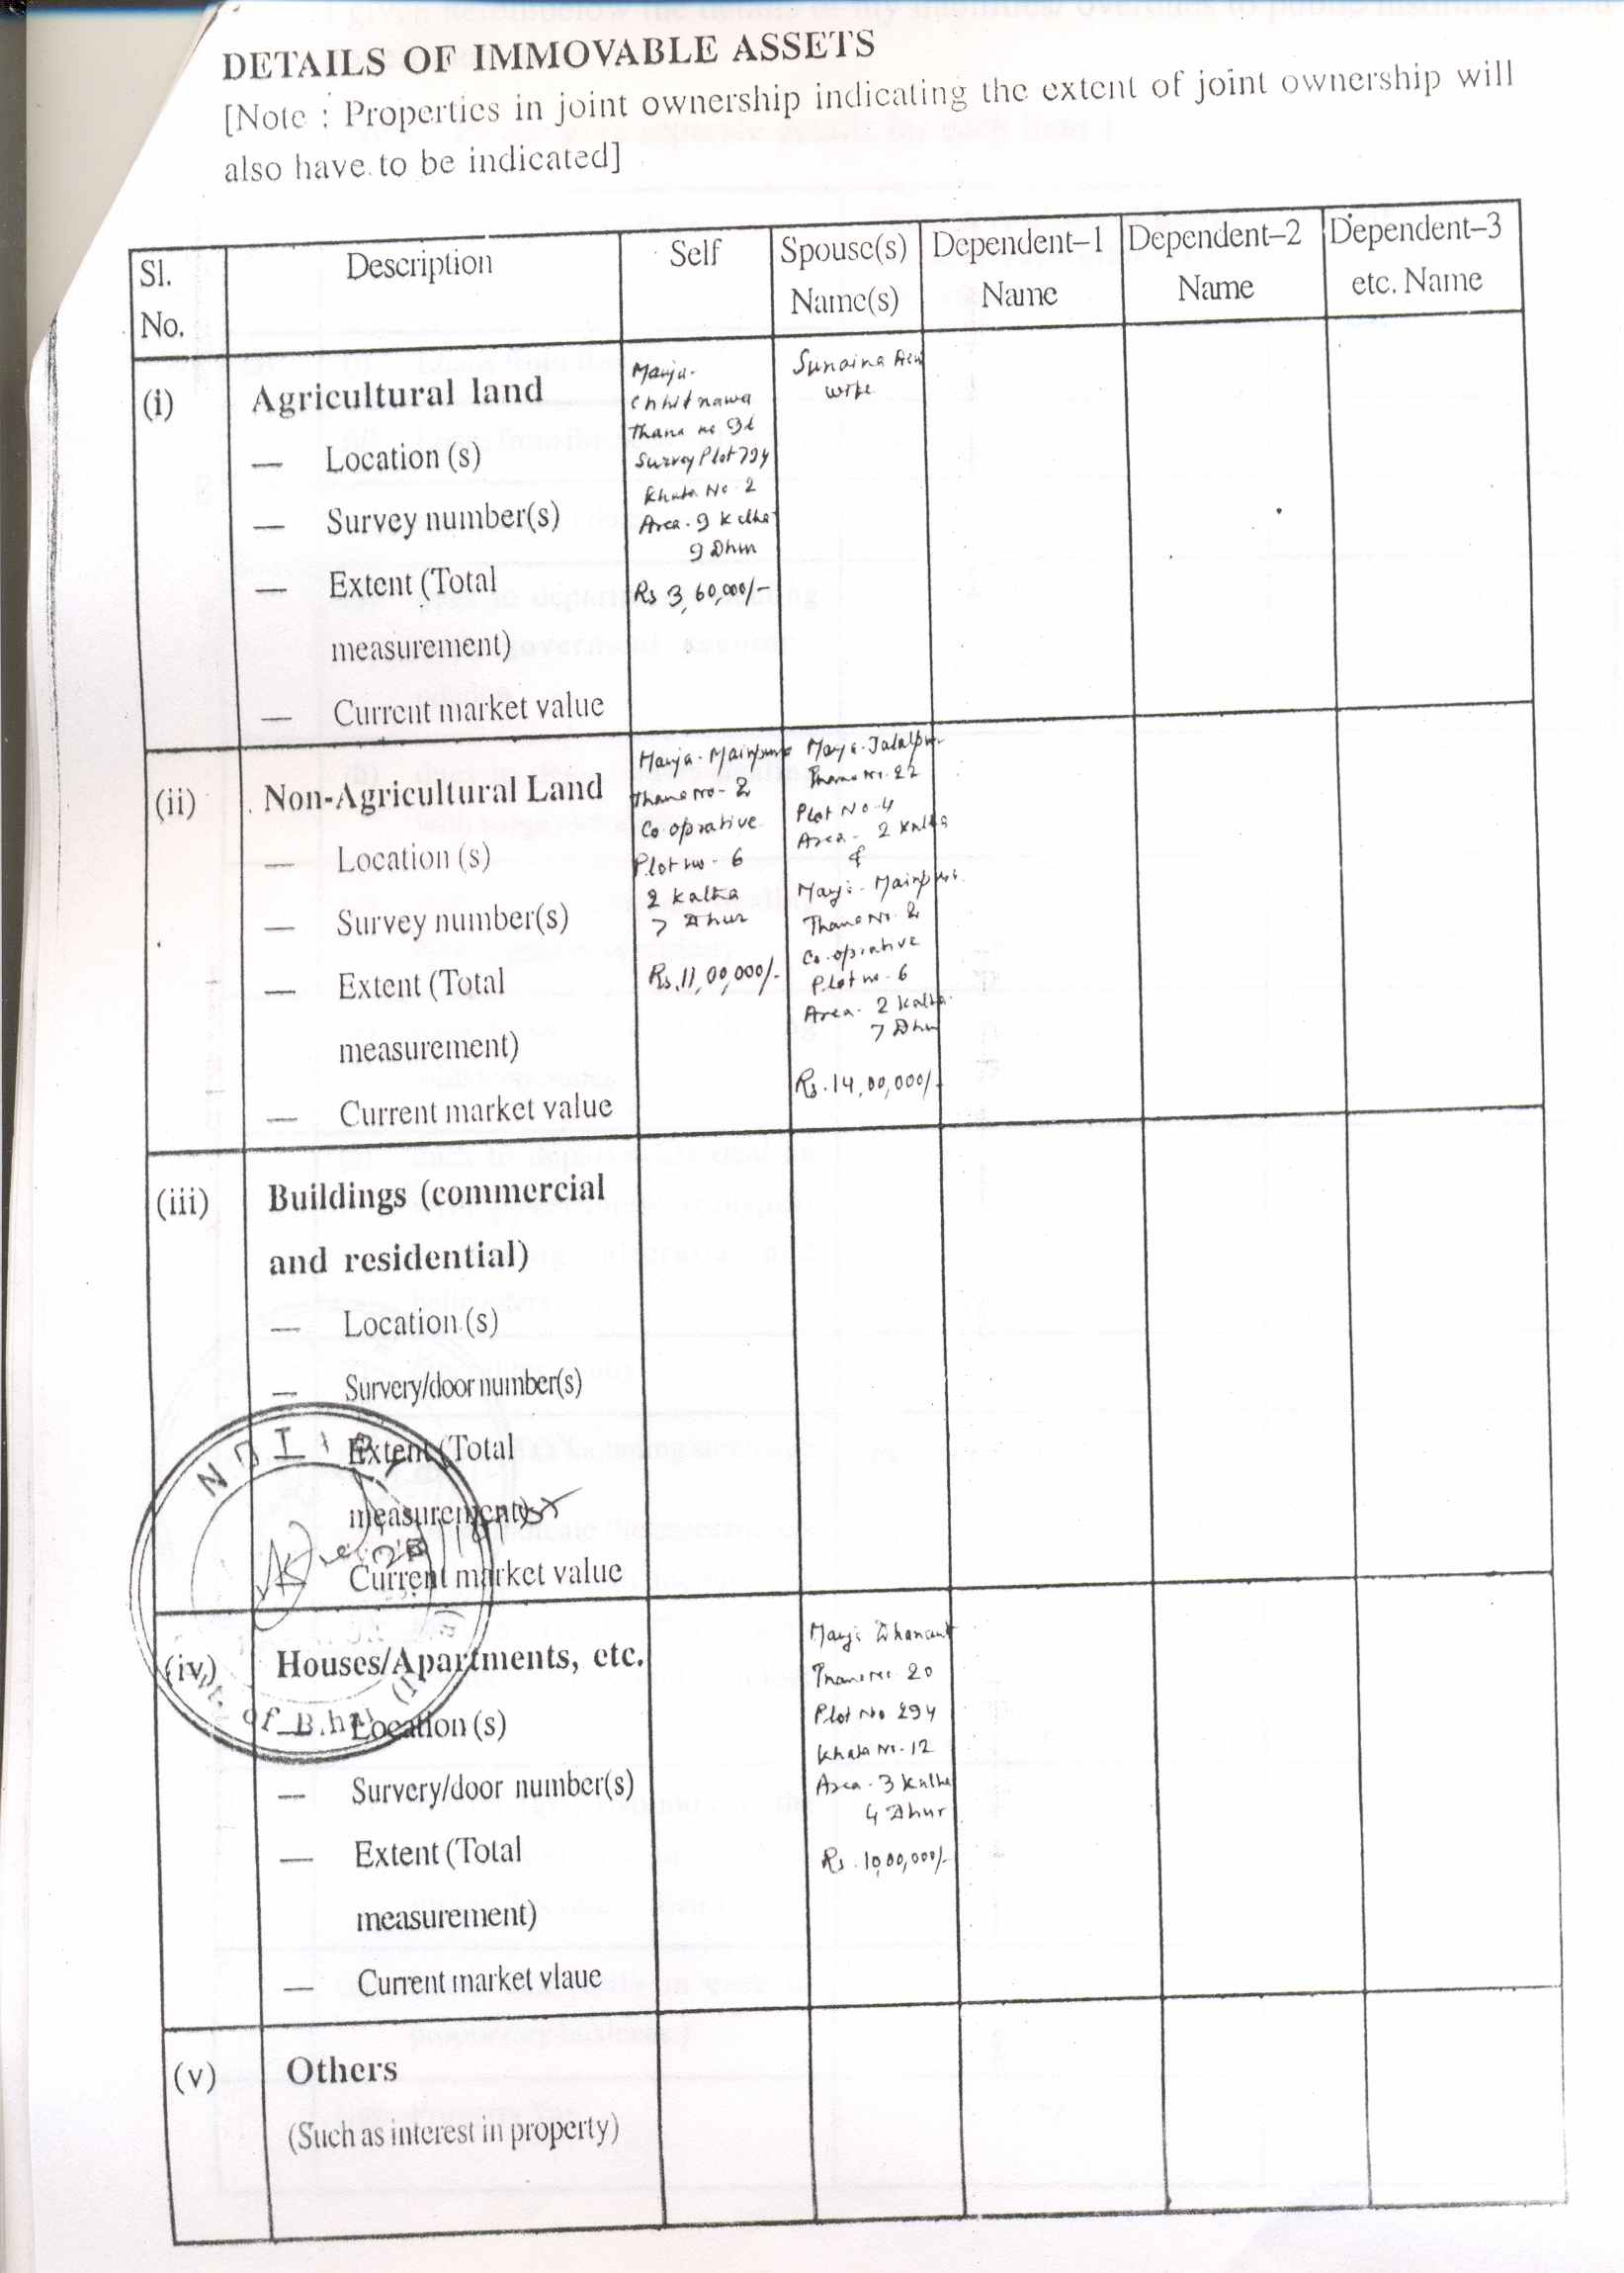 DETAILS OF IMMOVABLE ASSETS
[Note : Properties in joint ownership indicating the extent of joint ownership will
also have to be indicated]
Sl. No.
Description
Self
Spouse(s) Name(s)
Dependent–1 Name
Dependent–2 Name
Dependent–3 etc. Name
(i)
Agricultural land
— Location (s)
— Survey number(s)
— Extent (Total
measurement)
— Current market value
Chhitnawa
Thana no
Survey Plot 794
Khata No 2
Area - 9
9 Dhur
Rs 3,60,000/-
Sunaina
wife
(ii)
Non-Agricultural Land
— Location (s)
— Survey number(s)
— Extent (Total
measurement)
— Current market value
Mauja - Mainpura
Thana no - 2
Co oprative
Plot no - 6
2 Katha
7 Dhur
Rs. 11,00,000/-
Jalalpur
Thana no. 22
Plot No 4
Area - 2 Katha
&
Mainpura
Thana No. 2
Co-oprative
Plot no - 6
Area - 2 Katha
7 Dhur
Rs. 14,00,000/-
(iii)
Buildings (commercial
and residential)
— Location (s)
— Survery/door number(s)
Extent (Total
measurement)
Current market value
(iv)
Houses/Apartments, etc.
— Location (s)
— Survery/door number(s)
— Extent (Total
measurement)
— Current market vlaue
Thana No 20
Plot No 294
Khata No - 12
Area - 3 Katha
4 Dhur
Rs. 10,00,000/-
(v)
Others
(Such as interest in property)